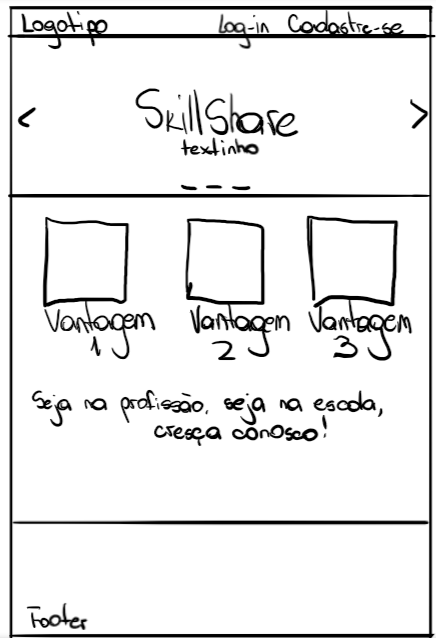 Logotipo Log-in Cadastre-se
< SkillShare >
textinho
Vantagem 1 Vantagem 2 Vantagem 3
Seja na profissão, seja na escola,
cresça conosco!
Footer